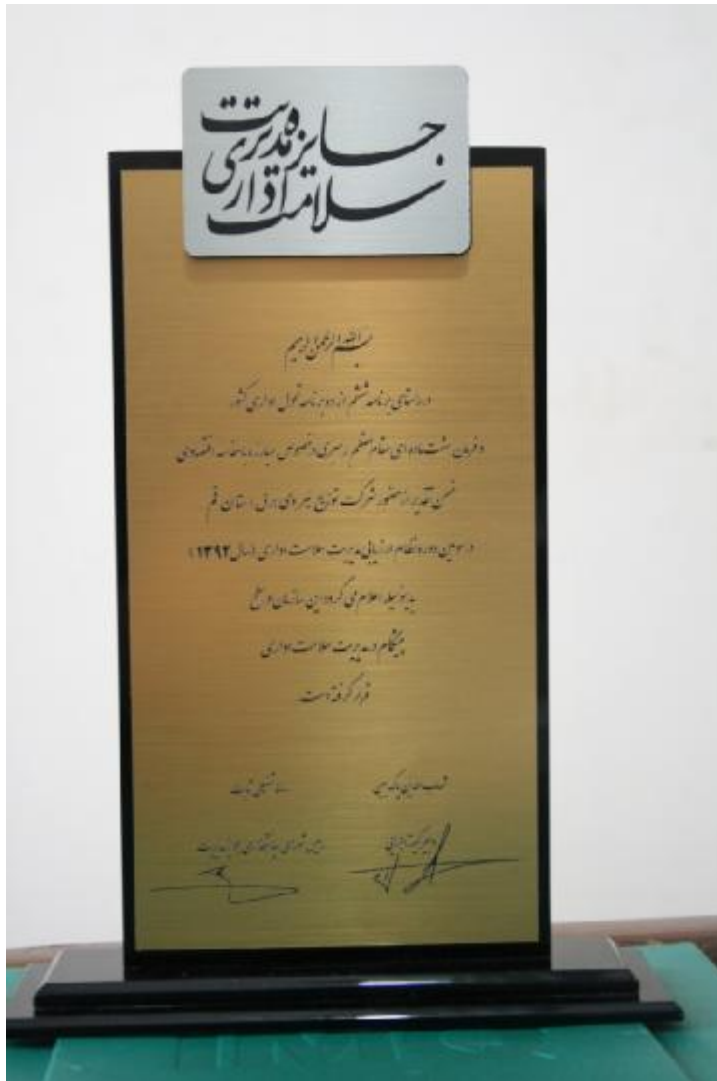 جایزه مدیریت
سلامت اداری
بسم الله الرحمن الرحیم
در راستای برنامه ششم از ده برنامه تحول اداری کشور
و فرمان هشت ماده ای مقام معظم رهبری در خصوص مبارزه با مفاسد اقتصادی
ضمن تقدیر از حضور شرکت توزیع نیروی برق استان قم
در سومین دوره نظام ارزیابی مدیریت سلامت اداری (سال ۱۳۹۲)
بدینوسیله اعلام می گردد این سازمان در سطح
پیشگام در مدیریت سلامت اداری
قرار گرفته است.
دبیر کمیته اجرایی
رئیس شورای سیاستگذاری جایزه مدیریت